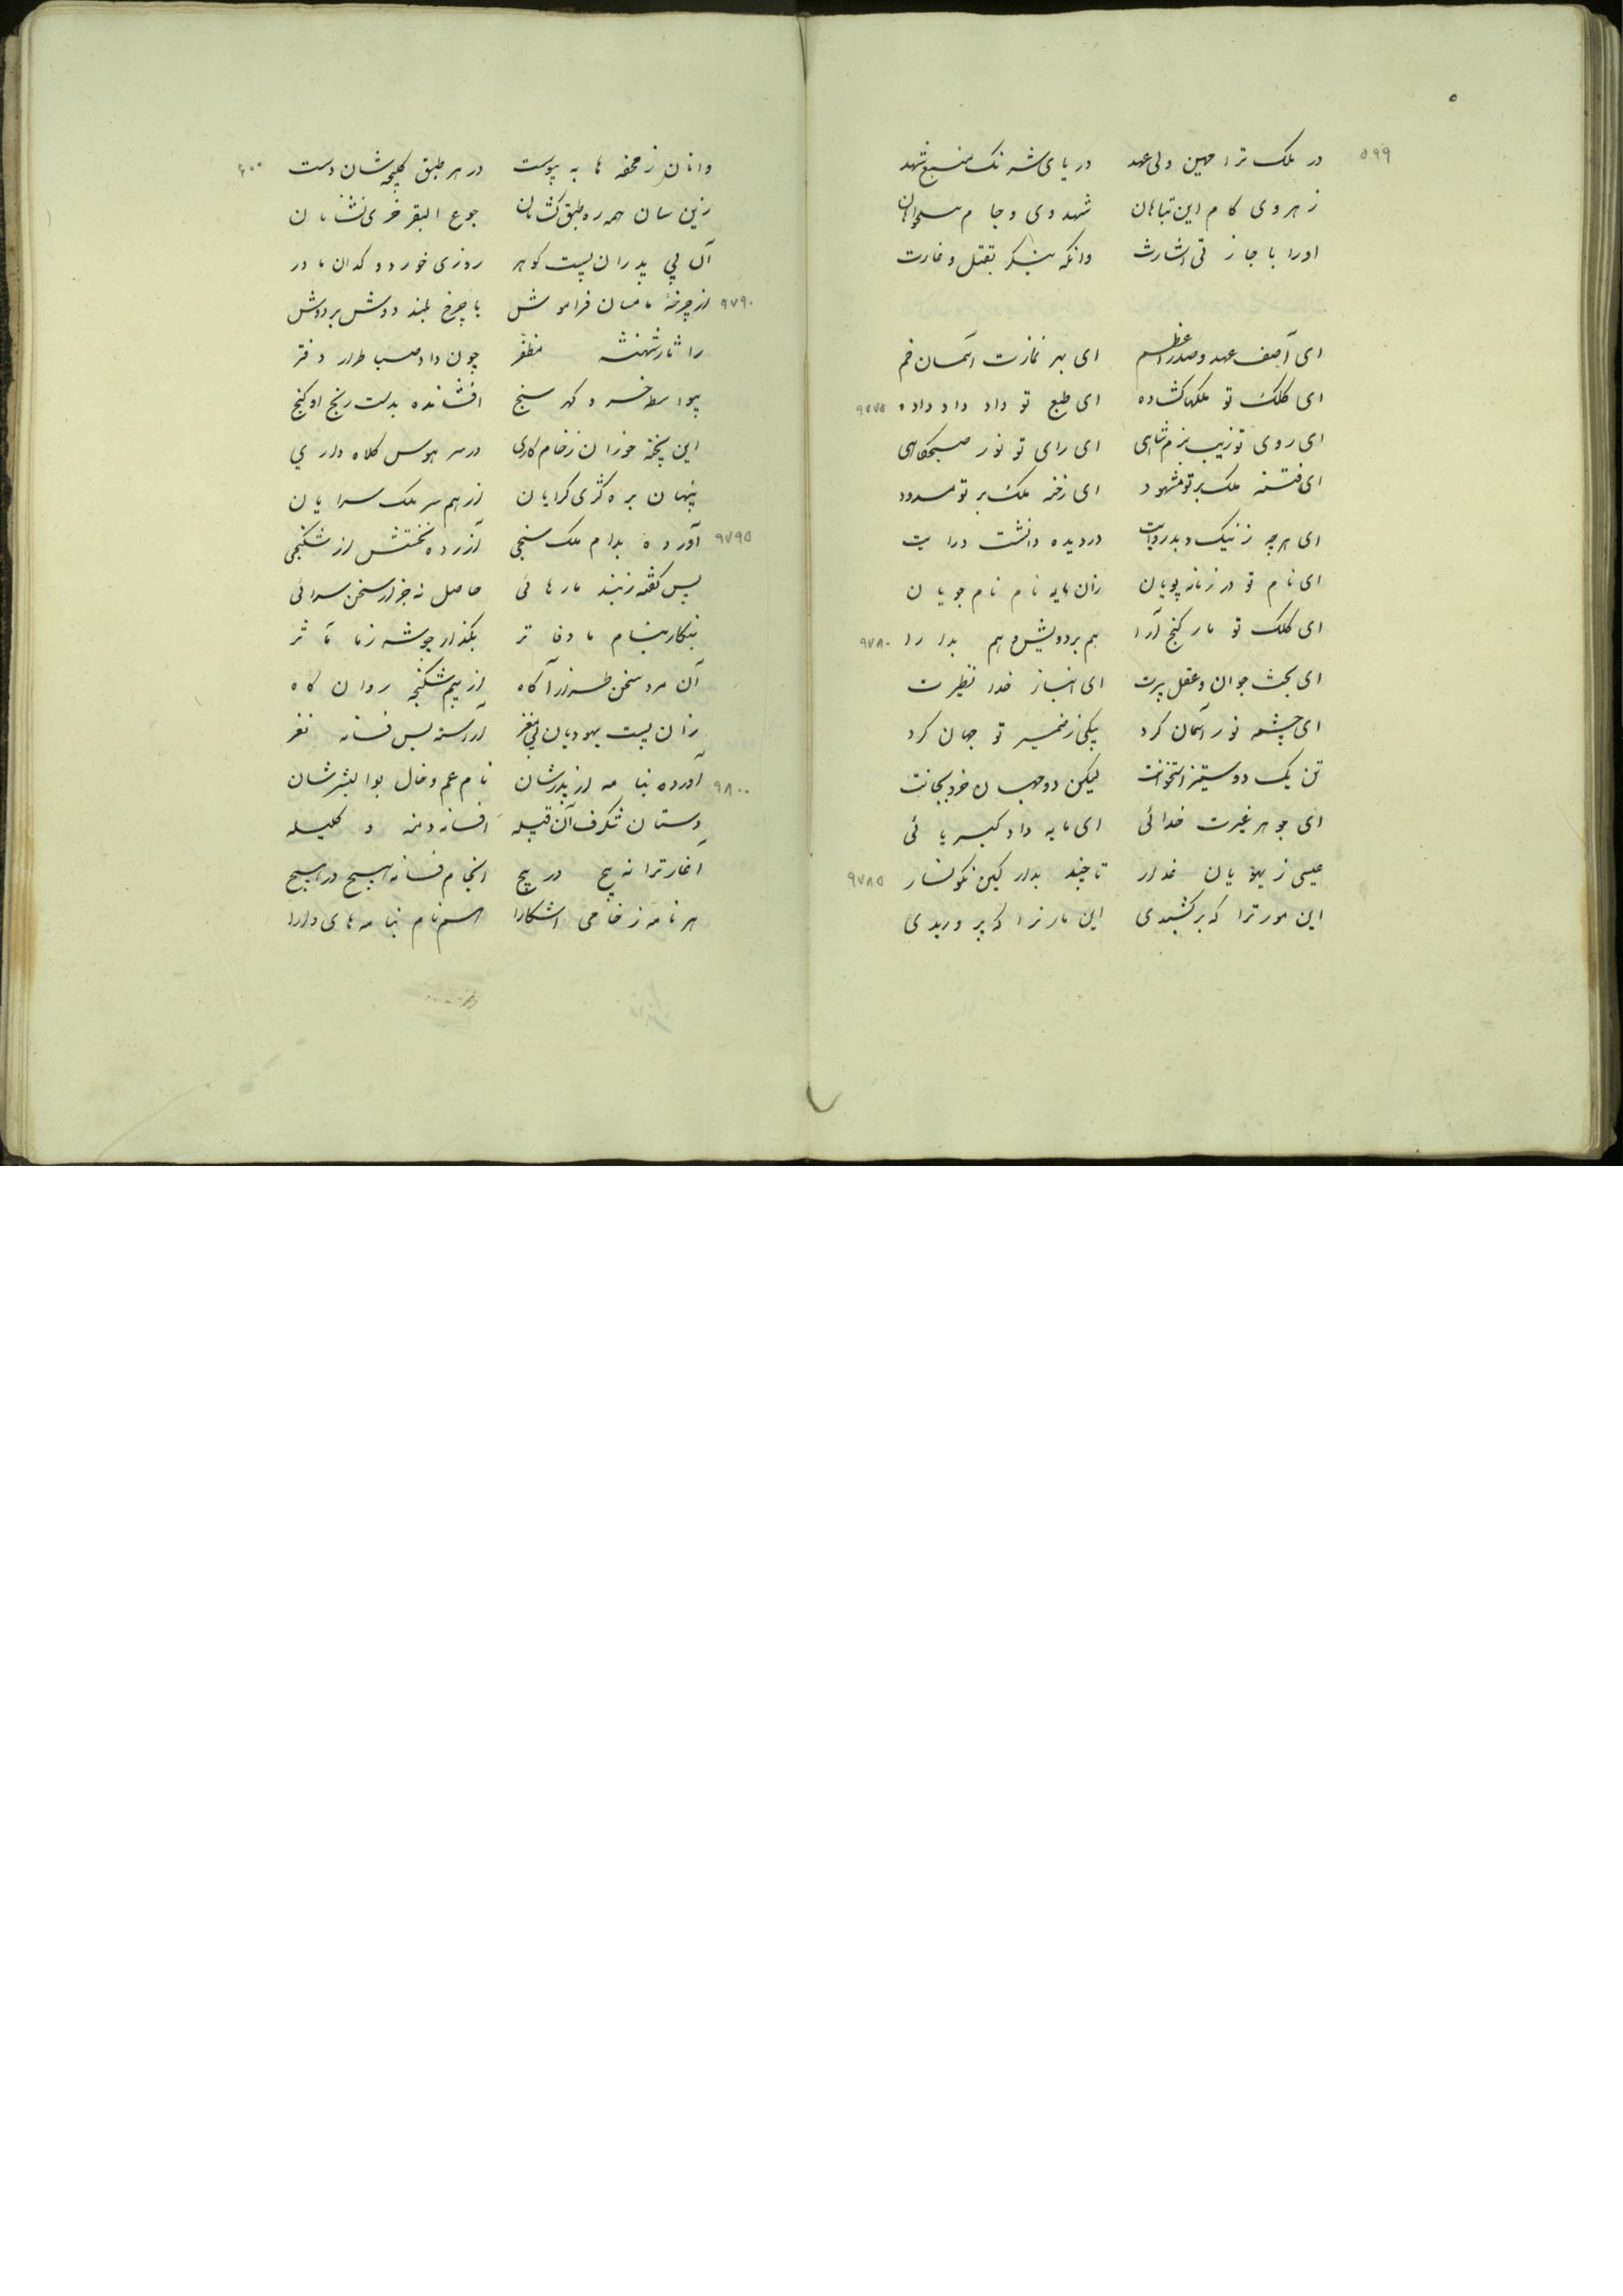 ۵۹۹
در ملک ترا مهین ولی عهد دریای شرنک منبع شهد
زهر وی کام این تباهان شهد وی و جام
او را با جاز نی اشارت وانکه بنگر بقتل و غارت
ای آصف عهد و صدر اعظم ای بهر نمازت آسمان خم
ای کلک تو ملکها گشاده ای طبع تو داد داد داده ۹۷۷۵
ای روی تو زیب بزم شاهی ای رای تو نور صبحگاهی
ای فتنه ملک بر تو مشهود ای رخنه ملک بر تو مسدود
ای هرچه ز نیک و بد روایت در دیده دانشت درایت
ای نام تو در زمانه پویان زان مایه نام نام جویان
ای کلک تو مار گنج آرا هم بر دو هم ۹۷۸۰
ای بخت جوان و عقل پیرت ای انباز خدا نظیرت
ای چشمه نور آسمان کرد پیکی ز ضمیر تو جهان کرد
تن یک دو ستیز استخوانت لیکن دو جهان خرد بجانت
ای جوهر غیرت خدائی ای مایه داد کبریائی
عیسی ز یهودیان غدار تا چند بدار کین نگونسار ۹۷۸۵
این مور ترا که برکشیدی این مار ترا که پروریدی
۶۰۰
وانان ز محفه ها به پیوست در هر طبق کلیچه شان دست
زین سان همه ره طبق کشانان جوع البقر خری نشانان
آن بی پدران پست کوهر روزی خور دوکدان مادر
از چرخهٔ مامشان فراموش با چرخ بلند دوش بر دوش ۹۷۹۰
را شهنشه مظفر چون داد طراز دفتر
خسرو گهر سنج افشانده بدست رنج او گنج
این پخته خوران ز خام کاری در سر هوس کلاه داری
پنهان بره کژی گرایان از هم سر ملک سرایان
آورده بدام ملک سنجی آزرده نخستش از شکنجی ۹۷۹۵
پس گفته ز بند ما رهائی حاصل نه جز از سخن سرائی
بنگار بنام ما دفاتر بگذار چو شه ز ما مآثر
آن مرد سخن طراز آگاه از بیم شکنجه روان کاه
زان پست یهودیان بی مغز آراسته بس فسانه نغز
آورده بنامه از پدرشان نام عم و خال بوالبشرشان ۹۸۰۰
دستان شگرف آن قبیله افسانه دمنه و کلیله
آغاز ترانه پیچ در پیچ انجام فسانه هیچ در هیچ
هر نامه ز خامی آشکارا نام نامه های دارا